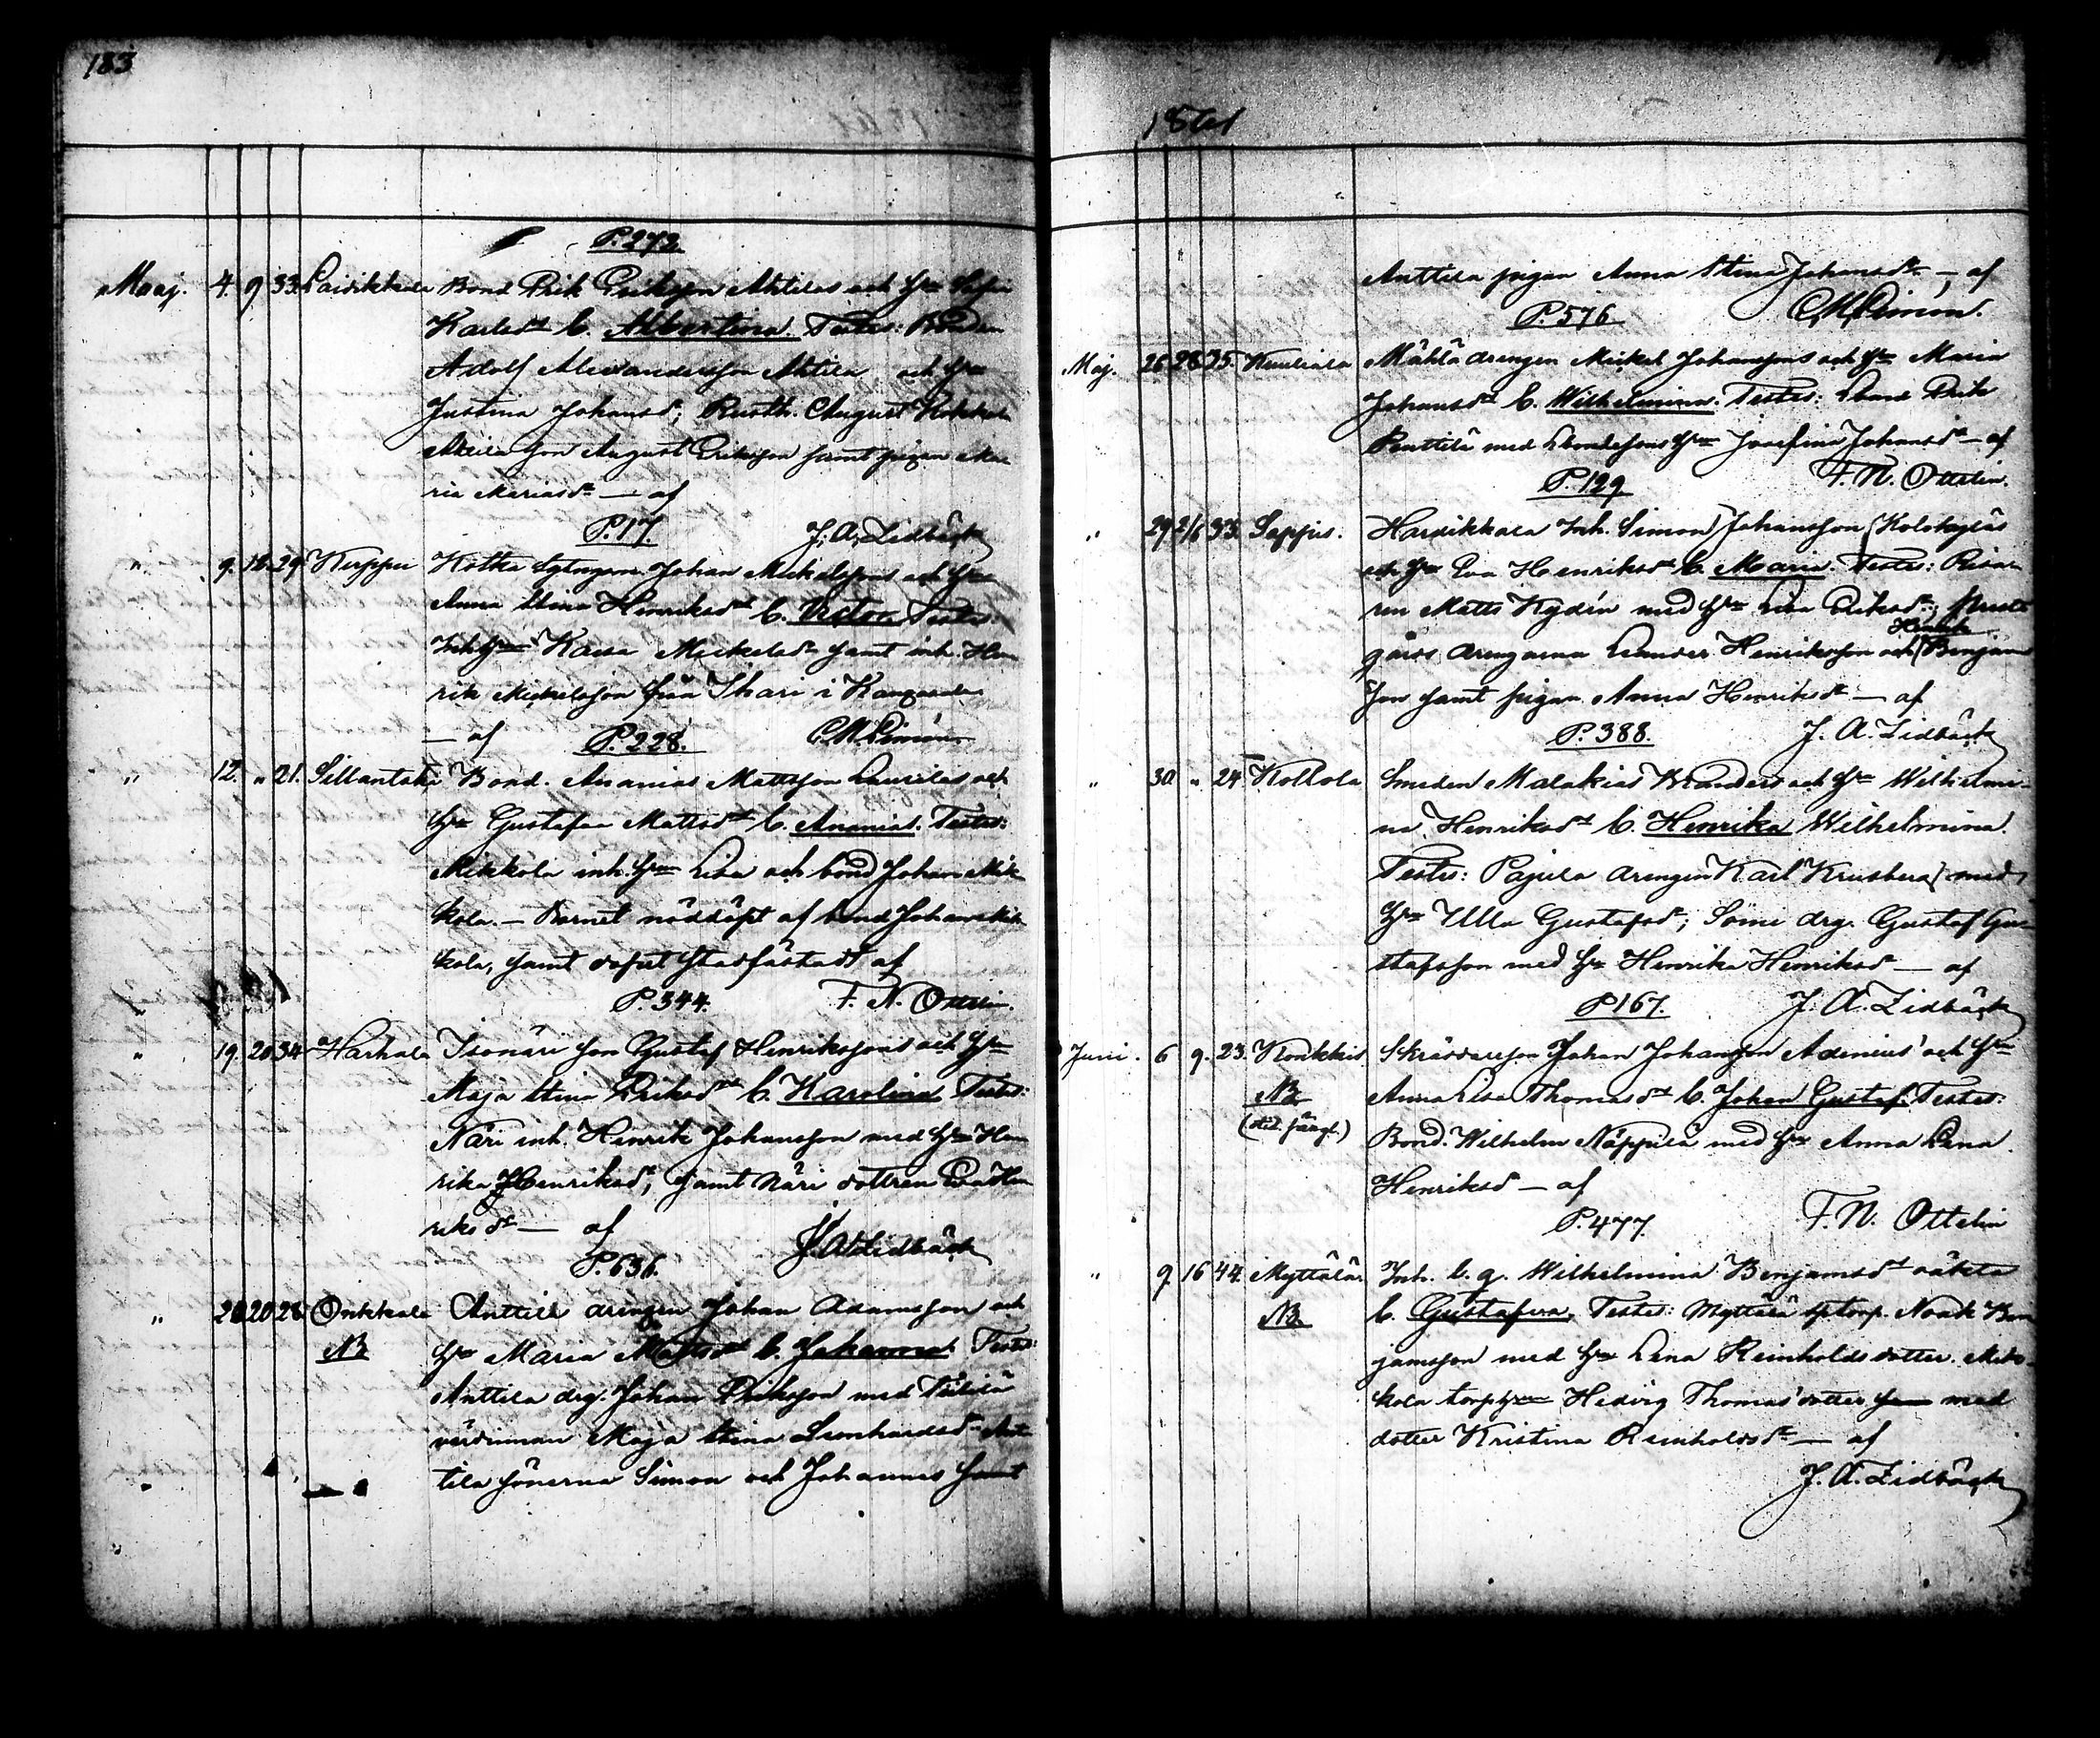 183
P. 273.
Maj. 4. 9 33. Laivikkala Bond. Erik Eriksson Ahtilas och hru Sofia
Karlsdr b. Albertina. Testes: Bonden
Adolf Alexandersson Ahtila och hru
Justina Johansd; Rusth. August Kokkala
son August Eriksson samt pigan Ma
ria Mariasdr — af
P. 17. J. A. Lidbäck
" 9. 12. 29. Kuppu Kotka Johan Mickelssons och hru
Anna Stina Henriksdr b. Victor. Testes:
Inh hru Kaisa Mickelsdr samt inh. Hen
rik Mickelsson från Ihari i Kangasala
— af P. 228. C. M. Limón
" 12. " 21. Sillantaka Bond. Ananias Mattsson Laurilas och
hru Gustafva Mattsdr b. Ananias. Testes:
Mikkola inh. hru Lisa och bond Johan Mik
kola. — Barnet nöddöpt af bond Johan Mik
kola, samt dopet stadfästadt af
P. 344. F. N. Ottelin.
" 19. 20 34. Harhala Isonäri son Gustaf Henrikssons och hru
Maja Stina Eriksdr b. Karolina Testes:
Näri inh. Henrik Johansson med hru Hen
rika Henriksd; samt Näri dottren Eva Hen
riksdr — af
P. 636. J. A. Lidbäck
" 20 20 28 Onkkala Anttila drengen Johan Adamsson och
NB hru Maria Mattsdr b. Johannes. Testes:
Anttila drg. Johan Eriksson med
värdinnan Maja Stina Leonhardsd. Ant
tila sönerna Simon och Johannes samt
1861
Anttila pigan Anna Stina Johansdr —, af
P. 576. C. M. Limón.
Maj. 26 28 35. Kuuliala Mählä drengen Mickel Johanssons och hru Maria
Johansdr b. Wilhelmina. Testes: Bond Erik
Penttilä med bondesons hru Josefina Johansdr — af
P. 129 F. N. Ottelin.
" 29 2/6 33. Sappis. Harvikkala Inh. Simon Johansson
och hru Eva Henriksdr b. Maria. Testes:
ren Matts Rydén med hru Lisa Eriksdr; Prest
Henrik
gårds drengarna Leander Henriksson och Benjam
son samt pigan Anna Henriksdr — af
P. 388. J. A. Lidbäck
" 30. " 24 Kollola Smeden Malakias Branders och hru Wilhelmi-
na Henriksdr b. Henrika Wilhelmina.
Testes: Pajula drengen Karl Krusberg med
hru Ulla Gustafsdr; Sömi drg. Gustaf Gu-
stafsson med hru Henrika Henriksdr — af
P 167. J. A. Lidbäck
Juni. 6 9. 23. Konkkis Skräddarson Johan Johansson Adenius' och hru
NB Anna Lisa Thomasdr b. Johan Gustaf. Testes:
Bond. Wilhelm Näppilä med hru Anna Lena
Henriksdr — af
P. 477. F. N. Ottelin
" 9 16 44. Myttälä Inh. b. q. Wilhelmina Benjamsdr oäkta
NB b. Gustafva, Testes: Myttälä sptorp. Noak Ben
jamsson med hru Lena Reinholdsdotter. Mik-
kola torp hru Hedvig Thomas'dotter med
dotter Kristina Reinholdsdr — af
J. A. Lidbäck